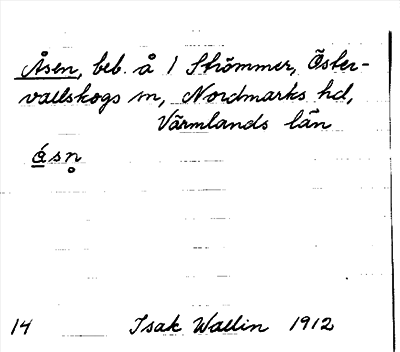 Åsen, beb. å 1 Strömmer, Öster-
vallskogs sn, Nordmarks hd,
Värmlands län
ásn̥
14 Isak Wallin 1912